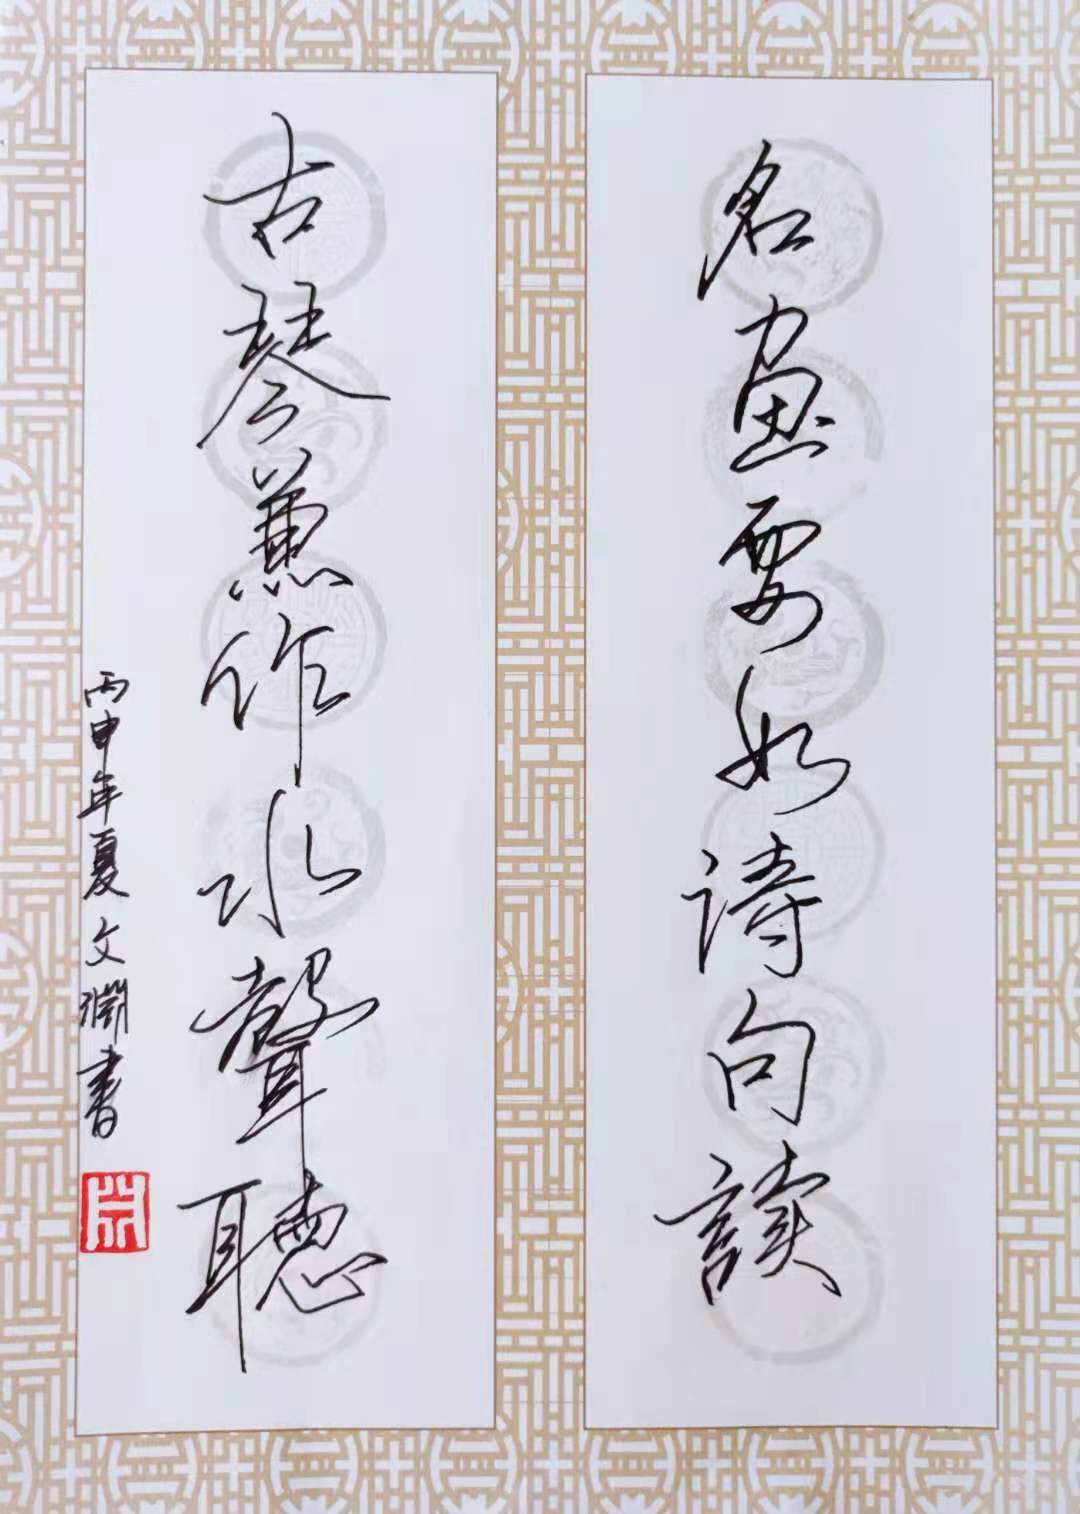 名画要如詩句讀
古琴兼作水聲聽
丙申年夏文淵書